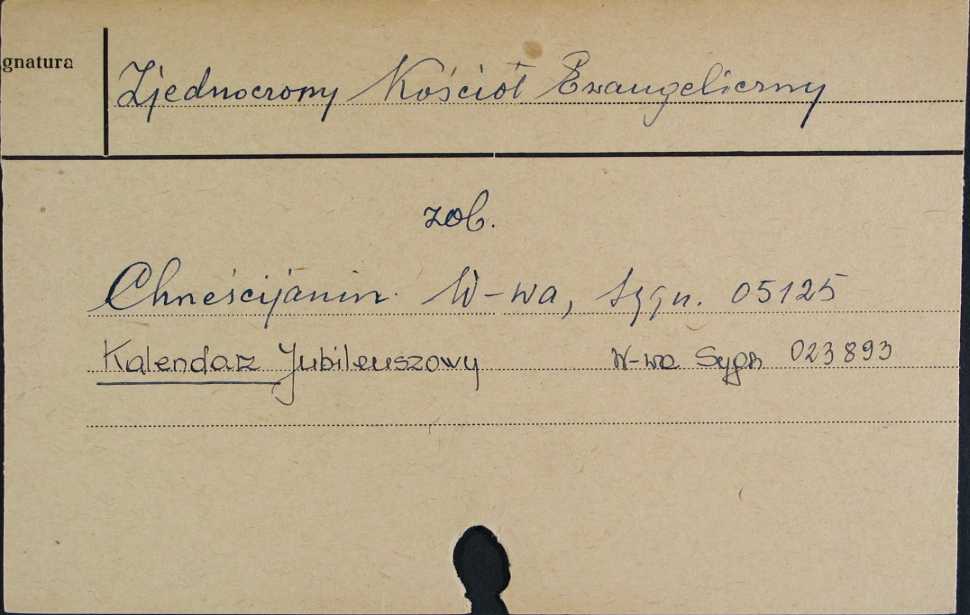 gnatura
Zjednoczony Kościół Ewangeliczny
zob.
Chrześcijanin. W-wa, Sygn. 05125
Kalendarz Jubileuszowy W-wa Sygn 023893